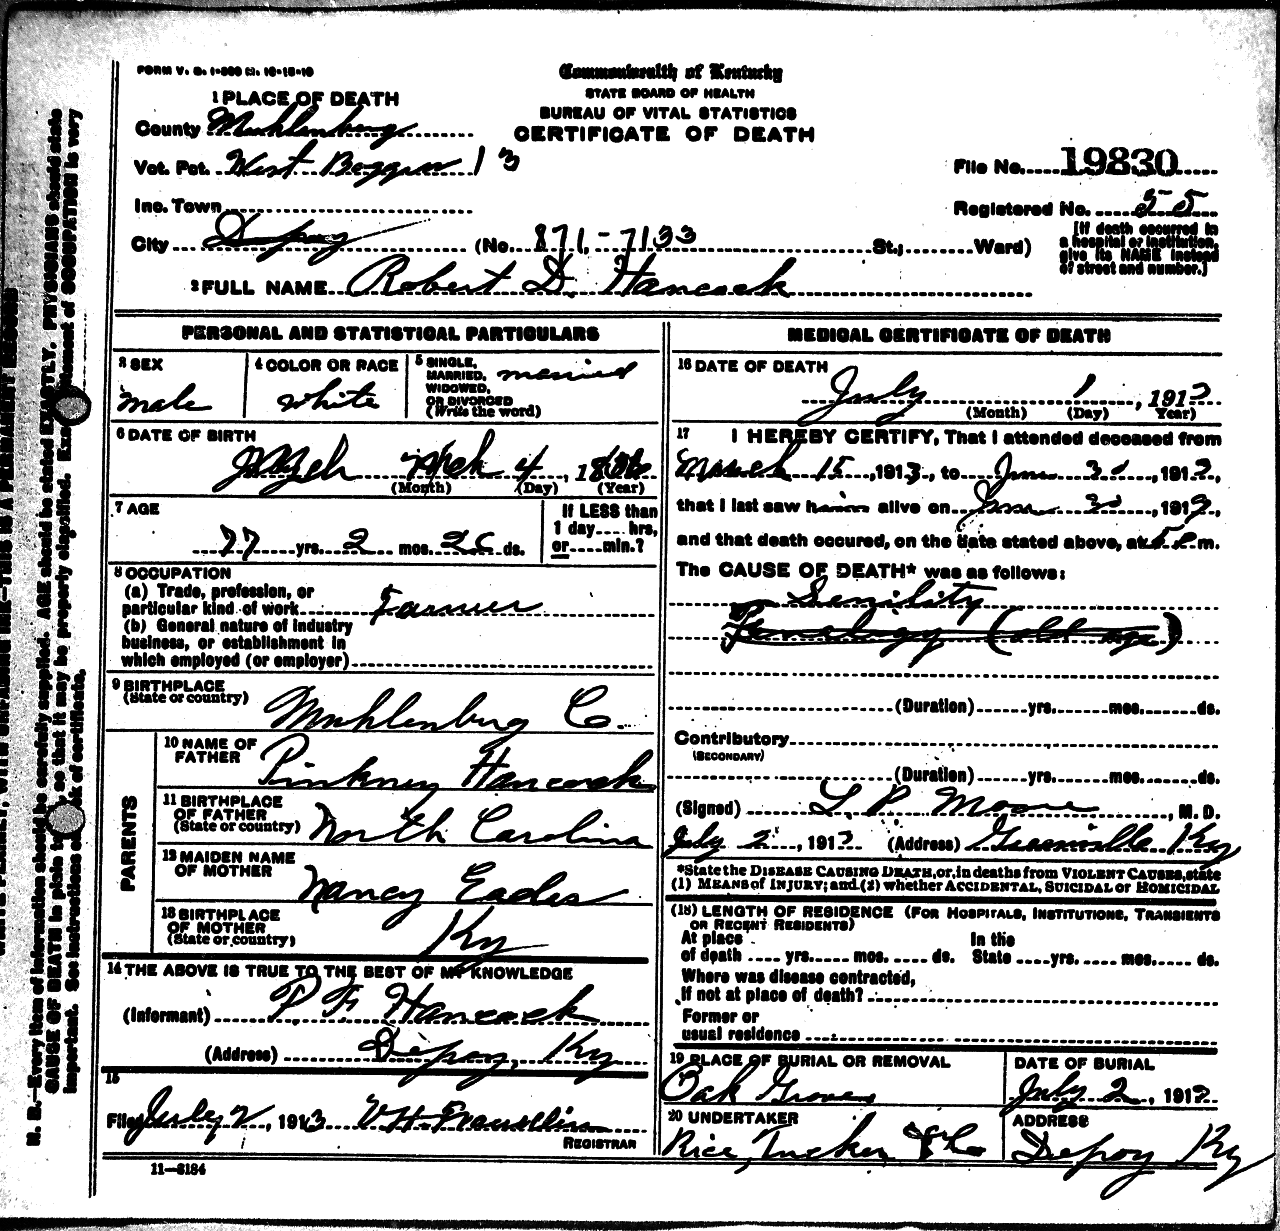 FORM V. S. 1-300 10-15-10
Commonwealth of Kentucky
STATE BOARD OF HEALTH
BUREAU OF VITAL STATISTICS
CERTIFICATE OF DEATH
1 PLACE OF DEATH
County Muhlenburg
Vot. Pct. West 13
Inc. Town
City Depoy (No. 871-7133 St.; Ward)
File No. 19830
Registered No. 55
[If death occurred in a hospital or institution, give its NAME instead of street and number.]
2 FULL NAME Robert D. Hancock
PERSONAL AND STATISTICAL PARTICULARS
3 SEX
male
4 COLOR OR RACE
white
5 SINGLE, MARRIED, WIDOWED, OR DIVORCED (Write the word)
married
6 DATE OF BIRTH
4, 18
(Month) (Day) (Year)
7 AGE
77 yrs. 2 mos. ds.
If LESS than 1 day hrs, or min.?
8 OCCUPATION
(a) Trade, profession, or
particular kind of work Farmer
(b) General nature of industry
business, or establishment in
which employed (or employer)
9 BIRTHPLACE
(State or country)
Muhlenburg Co.
PARENTS
10 NAME OF FATHER
Pinkney Hancock
11 BIRTHPLACE OF FATHER
(State or country) North Carolina
12 MAIDEN NAME OF MOTHER
Nancy Eades
13 BIRTHPLACE OF MOTHER
(State or country) Ky
14 THE ABOVE IS TRUE TO THE BEST OF MY KNOWLEDGE
(Informant) P F Hancock
(Address) Depoy, Ky
15
Filed July 2, 1913
REGISTRAR
11-3184
MEDICAL CERTIFICATE OF DEATH
16 DATE OF DEATH
July 1, 1913
(Month) (Day) Year)
17 I HEREBY CERTIFY, That I attended deceased from
March 15, 1913, to June 30, 1913,
that I last saw him alive on June 30, 1913,
and that death occured, on the date stated above, at 5 P m.
The CAUSE OF DEATH* was as follows:
Senility
(old age)
(Duration) yrs. mos. ds.
Contributory
(SECONDARY)
(Duration) yrs. mos. ds.
(Signed) L. P. Moore, M. D.
July 2, 1913 (Address) Greenville Ky
*State the DISEASE CAUSING DEATH, or, in deaths from VIOLENT CAUSES, state
(1) MEANS of INJURY; and (2) whether ACCIDENTAL, SUICIDAL or HOMICIDAL
(18) LENGTH OF RESIDENCE (FOR HOSPITALS, INSTITUTIONS, TRANSIENTS OR RECENT RESIDENTS)
At place of death yrs. mos. ds. In the State yrs. mos. ds.
Where was disease contracted,
If not at place of death?
Former or
usual residence
19 PLACE OF BURIAL OR REMOVAL
Oak Grove
DATE OF BURIAL
July 2, 1913
20 UNDERTAKER
Rice, Tucker & Co
ADDRESS
Depoy Ky
N. B.—Every item of information should be carefully supplied. AGE should be stated EXACTLY. PHYSICIANS should state
CAUSE OF DEATH in plain so that it may be properly classified. OCCUPATION is very
important. See instructions of certificate.